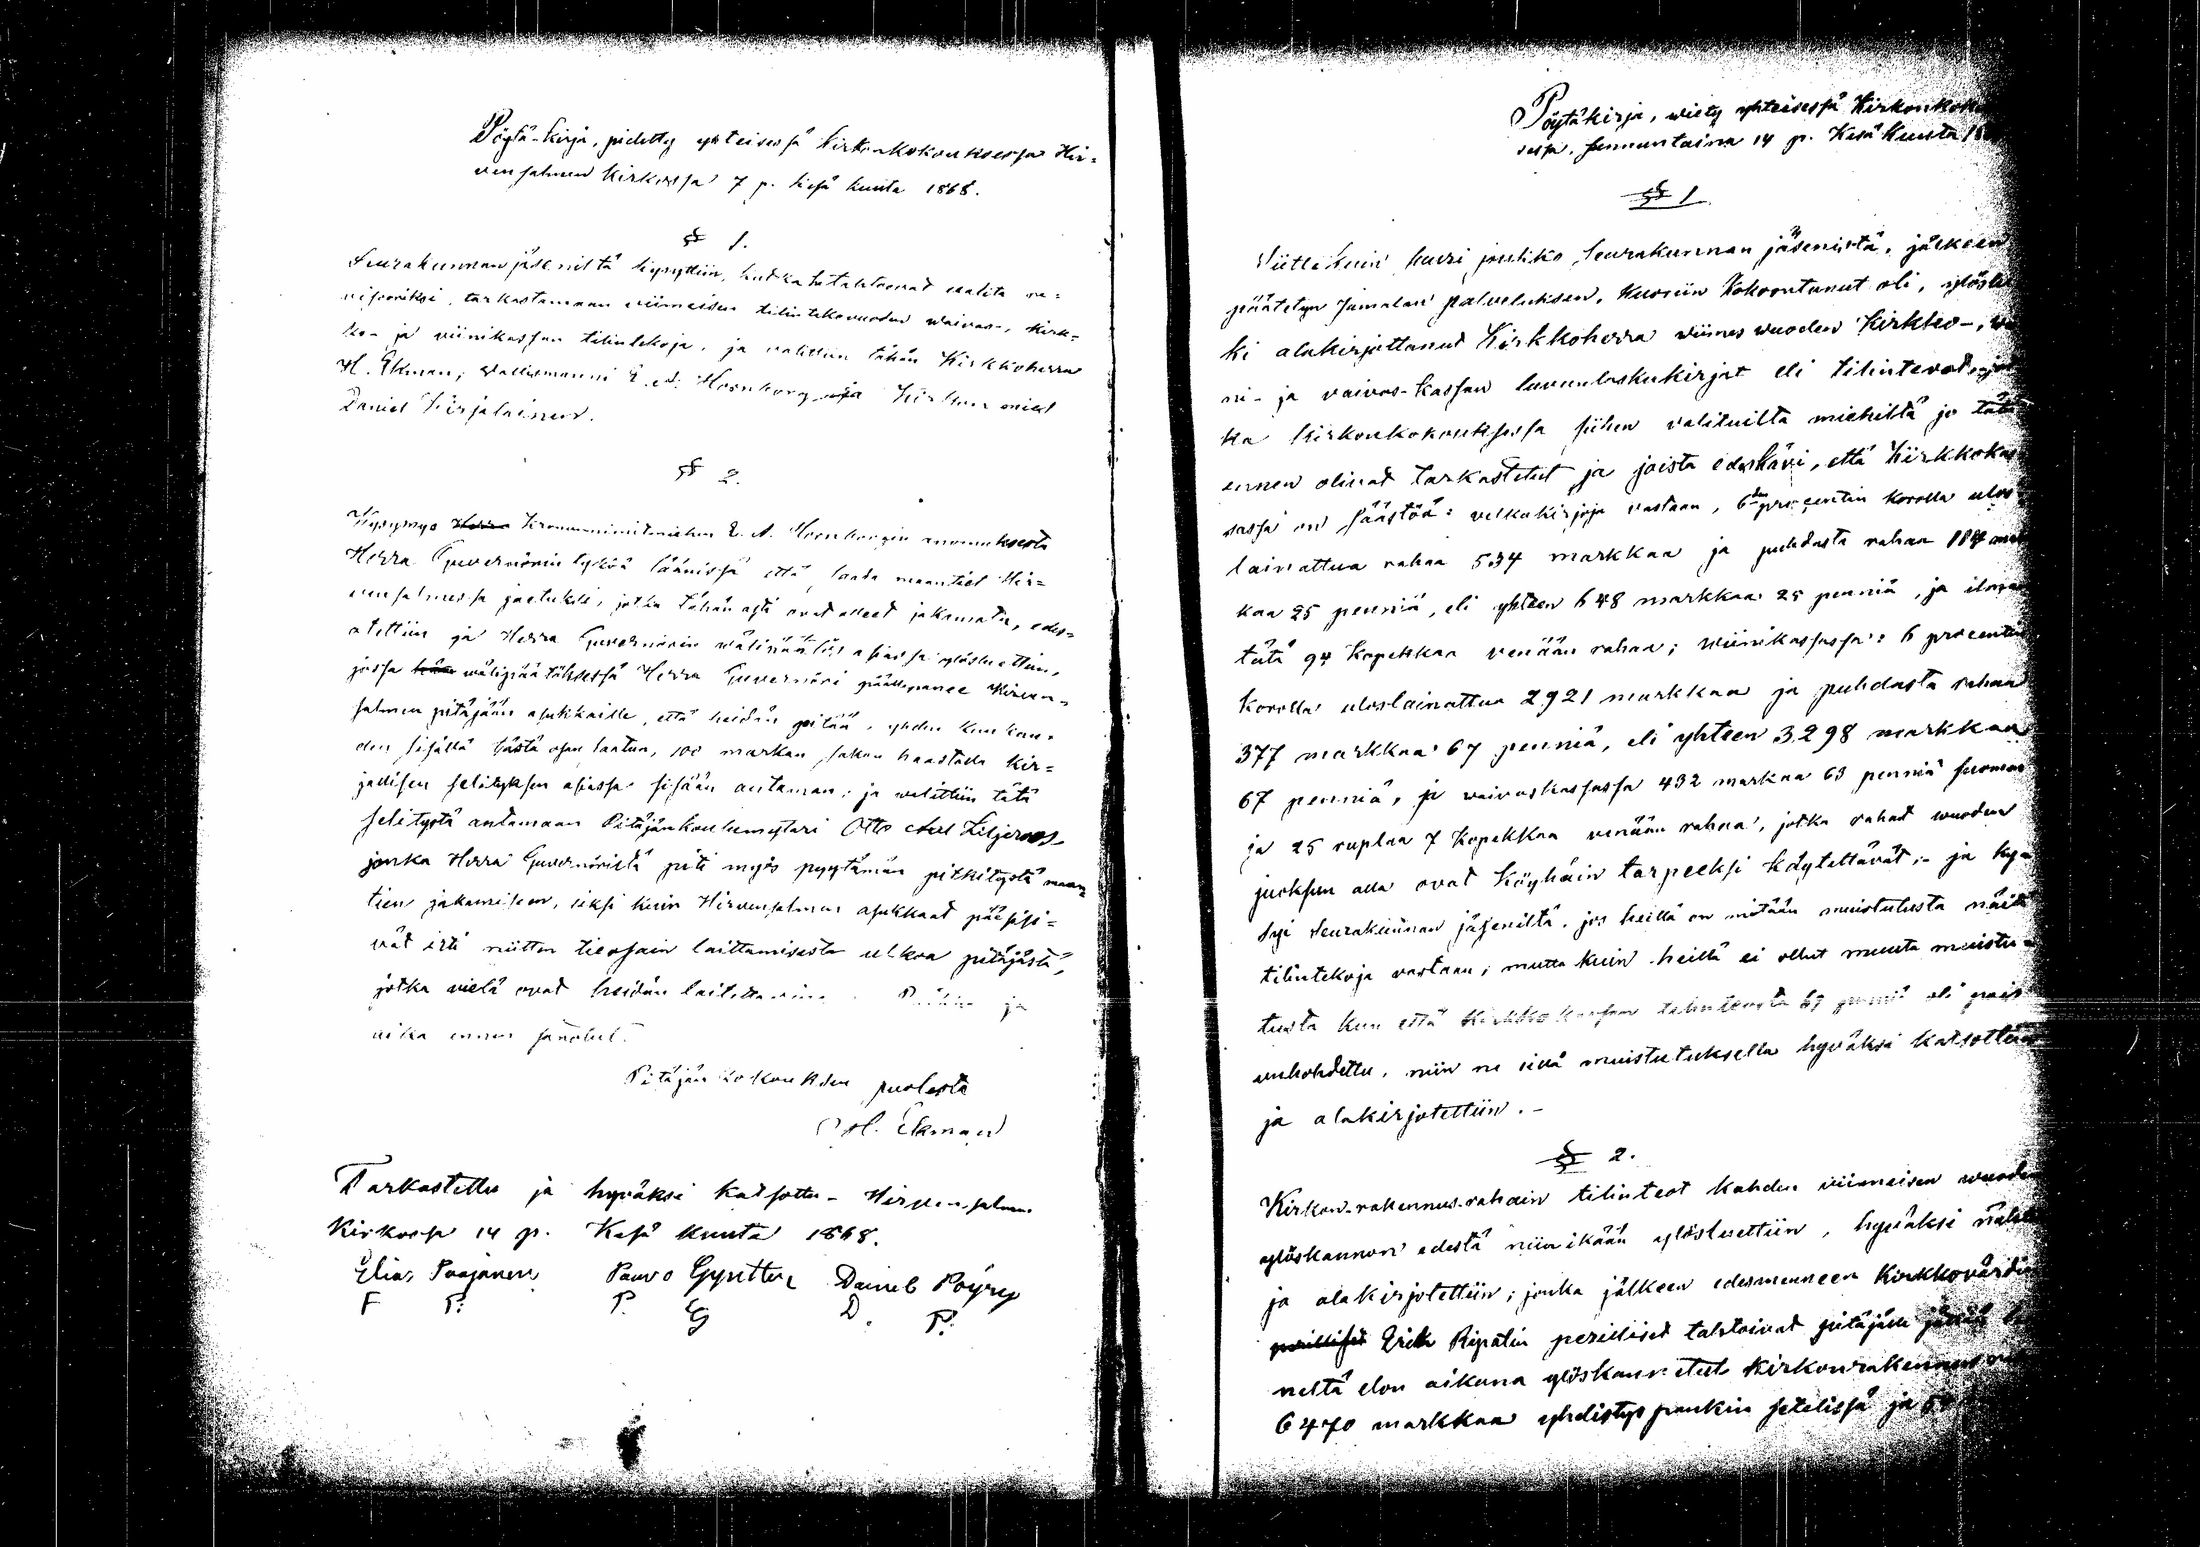 Pöytä-kirja, pidetty yhteisessä kirkonkokouksessa Hir=
vensalmen kirkossa 7 p. kesä kuuta 1868.
§ 1.
Seurakunnan jäseniltä kysyttiin, kutka he tahtoovat valita re-
visooriksi, tarkastamaan viimeisen tilintekovuoden waivas-, kirk=
ko- ja viinikassan tilintekoja, ja valittiin tähän Kirkkoherra
H. Ekman, Wallesmanni E. A. Hornborg ja Kirkon mies
Daniel Kirjalainen.
§ 2.
Kysymys Kruununnimismiehen E. A. Hornborgin anomuksesta
Herra Guvernörin tyköä läänissä että saada maantiet Hir=
vensalmessa jaetuksi, jotka tähän asti ovat olleet jakamata, edes=
otettiin ja Herra Guvernörin wälipäätös asiassa ylösluettiin,
jossa wälipäätöksessä Herra Guvernöri päällepanee Hirven-
salmen pitäjään asukkaille, että heidän pitää, yhden kuukau-
den sisällä tästä osan saatua, 100 markan sakon haastolla kir=
jallisen selityksen asiassa sisään antaman; ja valittiin tätä
selitystä antamaan Pitäjänkoulumestari Otto Aul Liljeroos
jonka Herra Guvernöristä piti myös pyytämän pitkitystä maan
tien jakamiseen, siksi kuin Hirvensalmen asukkaat pääsisi=
vät irti niitten tieosain laittamisesta ulkoa pitäjästä,
jotka vielä ovat heidän laitettavina. ja
aika ennen sanotut.
Pitäjän kokouksen puolesta
H. Ekman
Tarkastettu ja hyväksi katsottu - Hirvensalmen
Kirkossa 14 p. Kesä kuuta 1868.
Elias Paajanen Paavo Gynther Daniel Pöyry
F P. P. G D. P.
Pöytäkirja, wiety yhteisessä Kirkonkoko
sessa, sunnuntaina 14 p. Kesä Kuuta 18
§ 1
Siitte kuin suuri joukko Seurakunnan jäsenistä, jälkeen
päätetyn Jumalan palveluksen, kuoriin kokoontunut oli, ylöslu
ki alakirjottanut Kirkkoherra viimes wuoden Kirkko-,
ni- ja vaivas-kassan luvunlaskukirjat eli tilinteot, jot
ka kirkonkokouksessa siihen valituilta miehiltä jo tätä
ennen olivat tarkastetut ja joista edeskävi, että kirkkokas
sassa on säästöä: velkakirjoja vastaan, 6 den procentin korolla ulos
lainattua rahaa 534 markkaa ja puhdasta rahaa 114 mark
kaa 25 penniä, eli yhteen 648 markkaa 25 penniä, ja ilman
tätä 94 kopekkaa venään rahaa; wiinikassassa: 6 procentin
korolla uloslainattua 2,921 markkaa ja puhdasta rahaa
377 markkaa 67 penniä, eli yhteen 3,298 markkaa
67 penniä, ja vaivaskassassa 432 markaa 63 penniä suomen
ja 25 ruplaa 7 kopekkaa venään rahaa, jotka rahat wuoden
juoksun alla ovat köyhäin tarpeeksi käytettävät; - ja ky-
syi seurakunnan jäseniltä, jos heillä on mitään muistutusta näitä
tilintekoja vastaan; mutta kuin heillä ei ollut muuta muistu-
tusta kun että Kirkkokassan tilinteosta 67 penniä oli pois
unhohdettu, niin ne sillä muistutuksella hyväksi katsottiin
ja alakirjotettiin. -
§ 2.
Kirkon-rakennus-rahain tilinteot kahden viimeisen wuoden
ylöskannon edestä niin ikään ylösluettiin, hyväksi nähtiin
ja alakirjotettiin; jonka jälkeen edesmenneen Kirkkovärdin
Erik Ripatin perilliset tahtoivat pitäjälle jättää
neltä elon aikana ylöskannetut kirkonrakennus
6470 markkaa yhdistys pankin setelissä ja